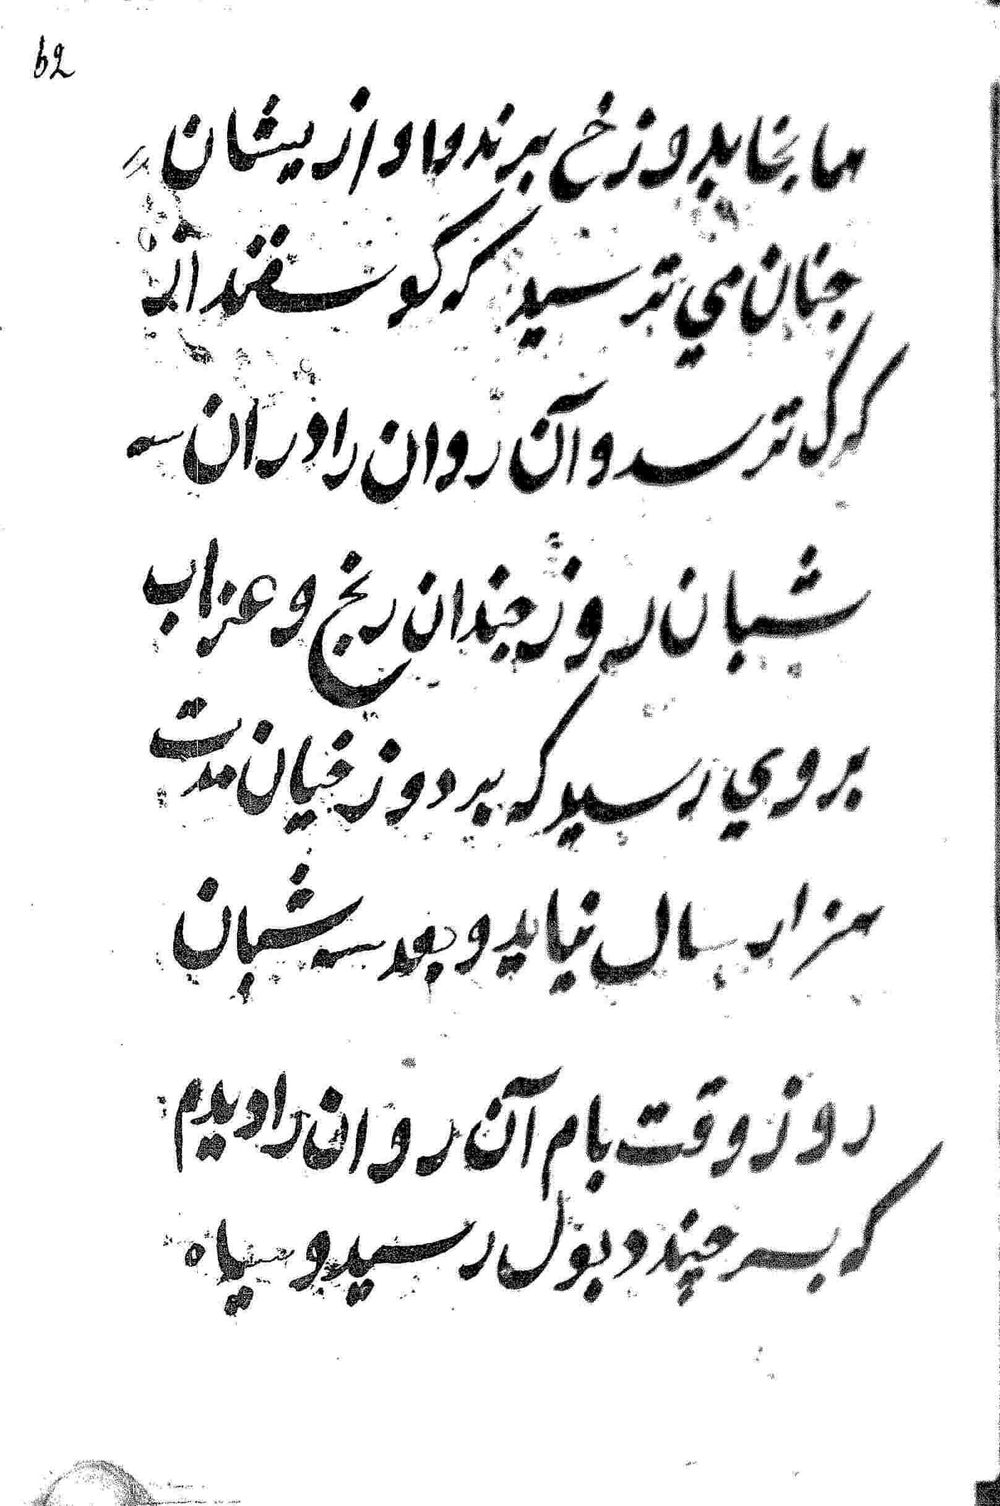 62
هما بخا بدوزخ برند و او ازیشان
جنان مي ترسید که گوسفند از
کرک ترسد و آن روان را دران سه
شبان روز جندان رنج و عزاب
بروي رسید که بر دوزخیان مدت
هزار سال نیاید و بعد سه شبان
روز وقت بام آن روان را دیدم
که بسر چند دبول رسید و سیاه